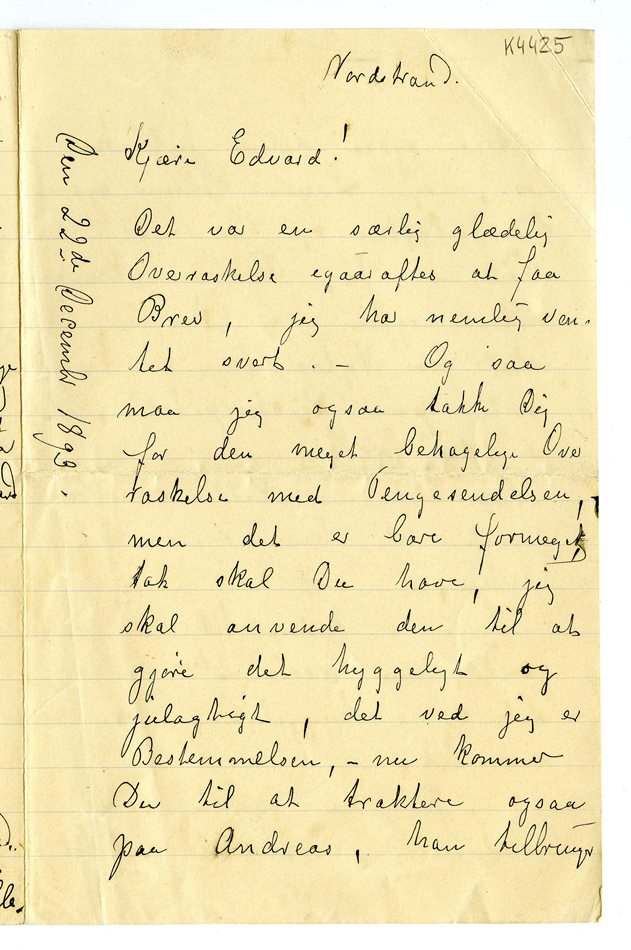 K4425
Nordstrand.
Den 22de December 1893.
Kjære Edvard!
Det var en særlig glædelig
Overraskelse igaaraftes at faa
Brev, jeg har nemlig ven-
tet svert. - Og saa
maa jeg ogsaa takke Dig
for den meget behagelige Over
raskelse med Pengesendelsen,
men det er bare formeget,
tak skal Du have, jeg
skal anvende den til at
gjøre det hyggeligt og
julagtigt, det ved jeg er
Bestemmelsen, - nu kommer
Du til at traktere ogsaa
paa Andreas, han tilbringer